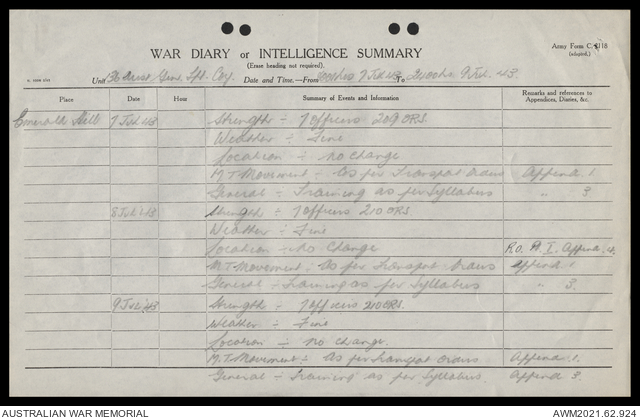 Army Form C. 2118
(adapted.)
WAR DIARY or INTELLIGENCE SUMMARY
(Erase heading not required).
Unit 36 Aust Gen. Tpt. Coy. Date and Time.—From 0001hrs 7 Jul 43 To 2400hrs 9 Jul. 43.
Place Date Hour Summary of Events and Information Remarks and references to Appendices, Diaries, &c.
Emerald Hill 7 Jul 43 Strength ÷ 7 Officers 209 ORS.
Weather ÷ Fine
Location ÷ No Change
M.T. Movement ÷ As per Transport Orders Append 1.
General ÷ Training as per Syllabus " 3
8 Jul 43 Strength ÷ 7 Officers 210 ORS
Weather ÷ Fine
Location ÷ No Change R.O. Append 4.
M.T. Movement ÷ As per Transport Orders Append 1
General ÷ Training as per Syllabus " 3.
9 Jul 43 Strength ÷ 7 Officers 210 ORS.
Weather ÷ Fine
Location ÷ No change.
M.T. Movement ÷ As per Transport Orders Append 1.
General ÷ Training as per Syllabus. Append 3.
AUSTRALIAN WAR MEMORIAL AWM2021.62.924